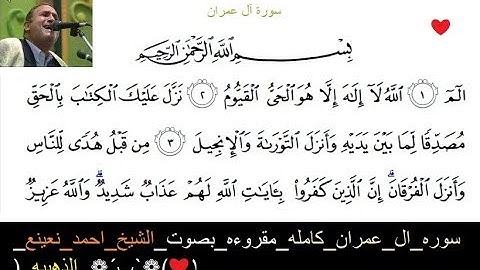 سورة آل عمران
بِسْمِ اللَّهِ الرَّحْمَٰنِ الرَّحِيمِ
الٓمٓ ١ اللَّهُ لَآ إِلَٰهَ إِلَّا هُوَ الْحَيُّ الْقَيُّومُ ٢ نَزَّلَ عَلَيْكَ الْكِتَٰبَ بِالْحَقِّ
مُصَدِّقًا لِّمَا بَيْنَ يَدَيْهِ وَأَنزَلَ التَّوْرَىٰةَ وَالْإِنجِيلَ ٣ مِن قَبْلُ هُدًى لِّلنَّاسِ
وَأَنزَلَ الْفُرْقَانَ ۗ إِنَّ الَّذِينَ كَفَرُوا۟ بِـَٔايَٰتِ اللَّهِ لَهُمْ عَذَابٌ شَدِيدٌ ۗ وَاللَّهُ عَزِيزٌ
سوره_ال_عمران_كامله_مقروءه_بصوت_الشيخ_احمد_نعينع_
_الذهبيه_(❤)